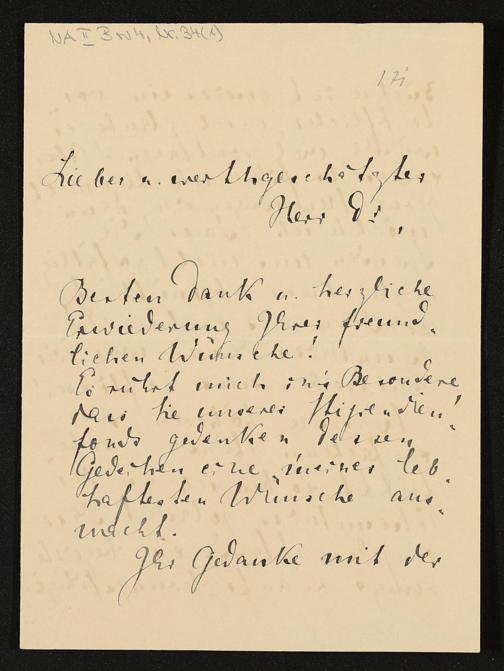 NA II 3 N4, Nr. 34(1)
Lieber u. werthgeschätzter
Herr Dr,
Besten Dank u. herzliche
Erwiederung Ihrer freund-
lichen Wünsche!
Es rührt mich in's Besondere
dass Sie unseres Stipendien-
fonds gedenken dessen
Gedeihen eine meiner leb-
haftesten Wünsche aus-
macht.
Ihr Gedanke mit der